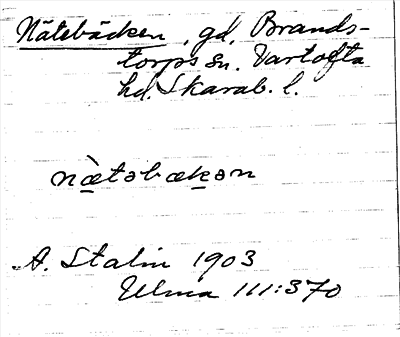 Nätebäcken, gd, Brands-
torps sn. Vartofta
hd. Skarab. l.
næ̀təbækən
A. Stalin 1903
Ulma 111:370